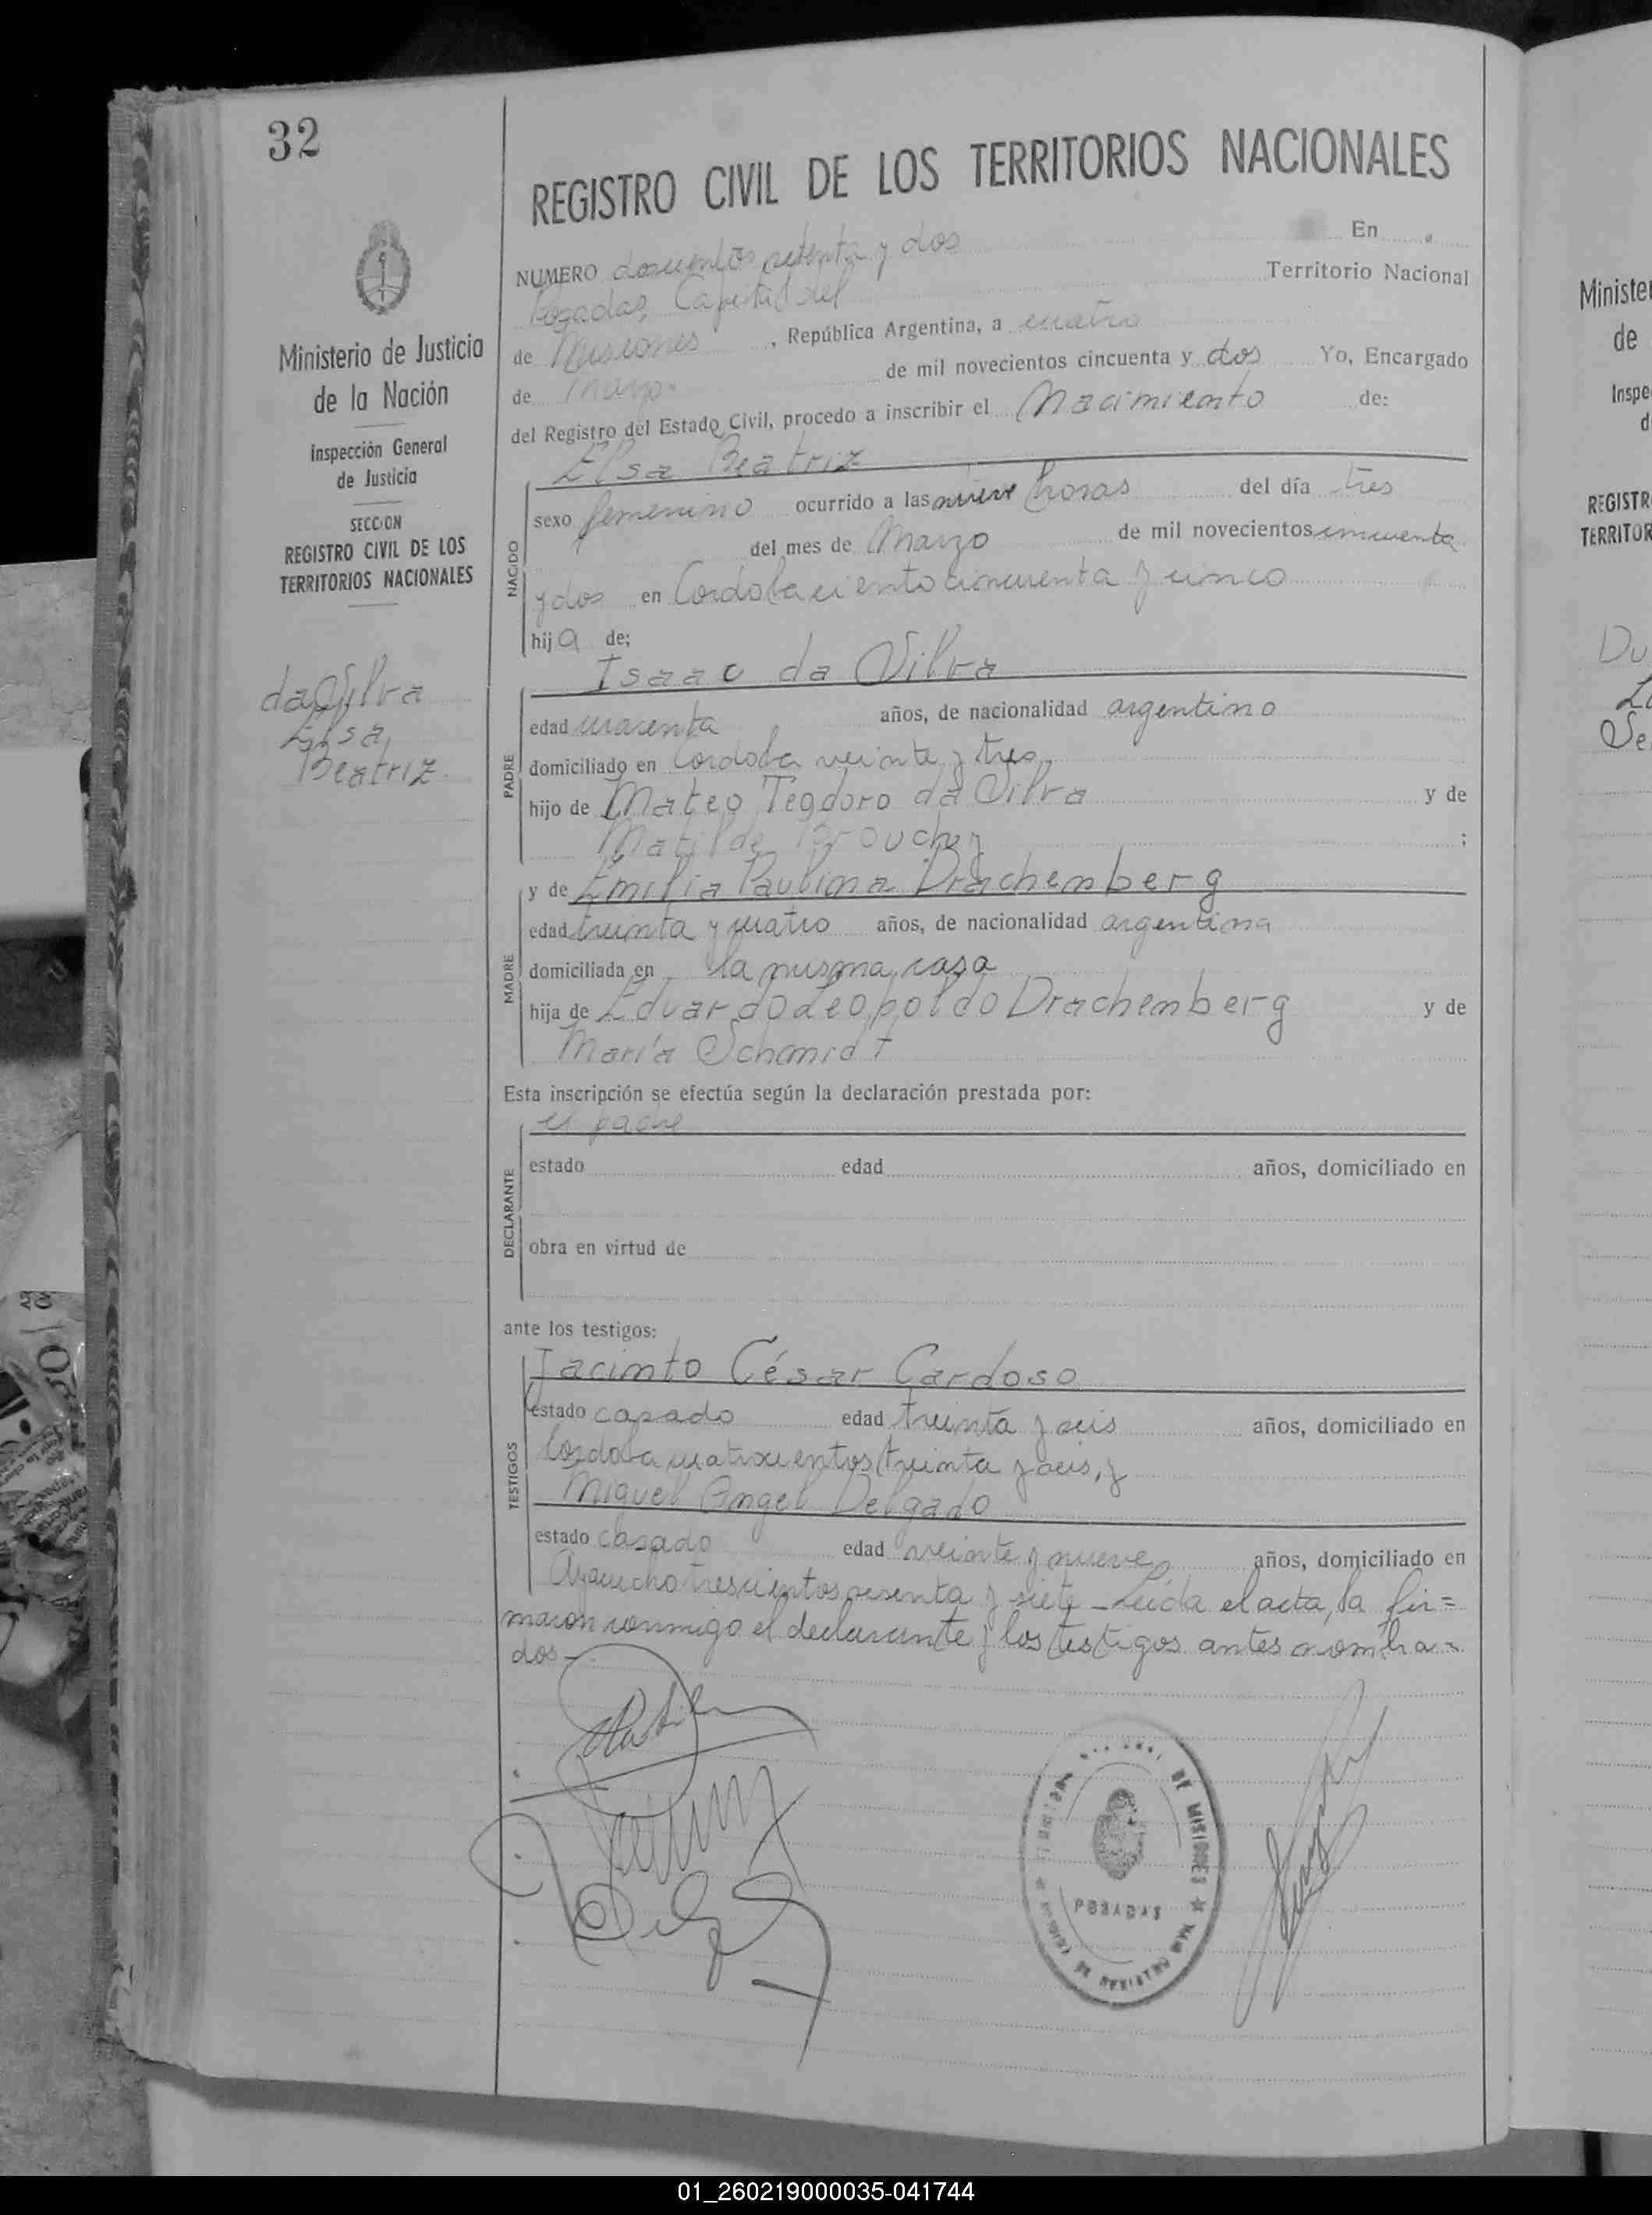 32
REGISTRO CIVIL DE LOS TERRITORIOS NACIONALES
NUMERO doscientos setenta y dos En
Posadas, Capital del Territorio Nacional
de Misiones, República Argentina, a cuatro
de marzo de mil novecientos cincuenta y dos Yo, Encargado
del Registro del Estado Civil, procedo a inscribir el Nacimiento de:
Elsa Beatriz
NACIDO
sexo femenino ocurrido a las nueve horas del día tres
del mes de Marzo de mil novecientos cincuenta
y dos en Cordoba ciento cincuenta y cinco
hija de:
Isaac da Silva
PADRE
edad cuarenta años, de nacionalidad argentino
domiciliado en Cordoba veinte y tres,
hijo de Mateo Teodoro da Silva y de
Matilde ;
y de Emilia Paulina Drachemberg
MADRE
edad treinta y cuatro años, de nacionalidad argentina
domiciliada en la misma casa
hija de Eduardo Leopoldo Drachemberg y de
María Schmidt
Esta inscripción se efectúa según la declaración prestada por:
el padre
DECLARANTE
estado edad años, domiciliado en
obra en virtud de
ante los testigos:
Jacinto César Cardoso
TESTIGOS
estado casado edad treinta y seis años, domiciliado en
Cordoba cuatrocientos treinta y seis, y
Miguel Angel Delgado
estado casado edad veinte y nueve, años, domiciliado en
Ayacucho trescientos sesenta y siete - Leida el acta, la fir=
maron conmigo el declarante y los testigos antes nombra=
dos -
Ministerio de Justicia
de la Nación
Inspección General
de Justicia
SECCION
REGISTRO CIVIL DE LOS
TERRITORIOS NACIONALES
da Silva
Elsa
Beatriz.
DE MISIONES
POSADAS
DE REGISTRO
Minister
de
Inspe
d
REGISTR
TERRITOR
Du
Se
01_260219000035-041744